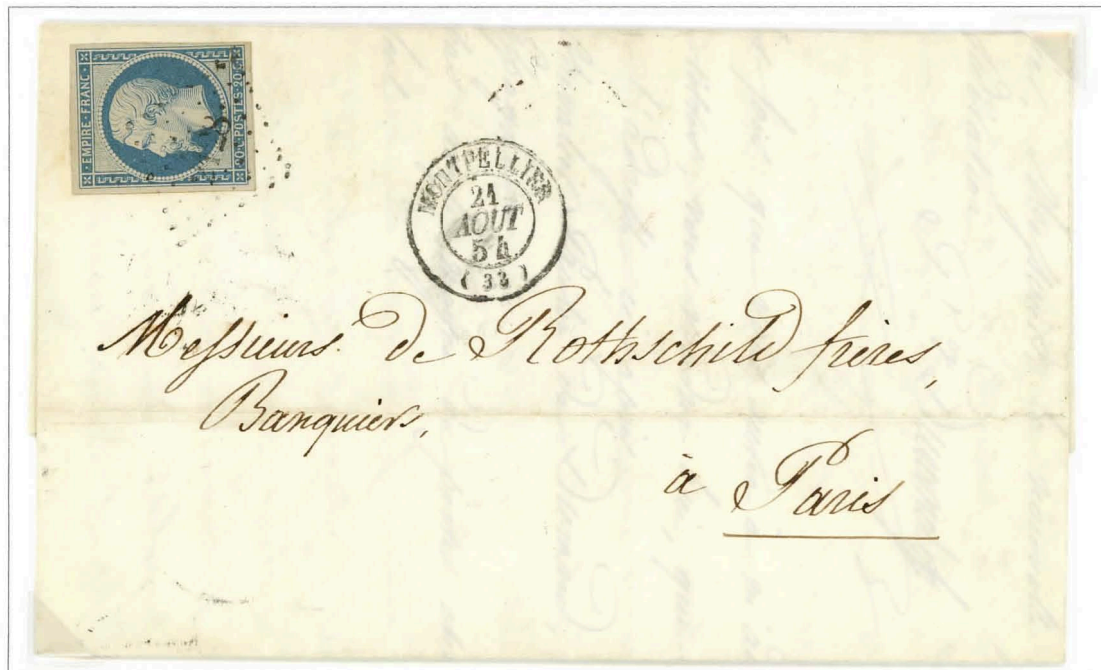 EMPIRE·FRANC·
20·c·POSTES·20·c
MONTPELLIER
21
AOUT
54
( 33 )
Messieurs. de Rothschild frères,
Banquiers,
à Paris